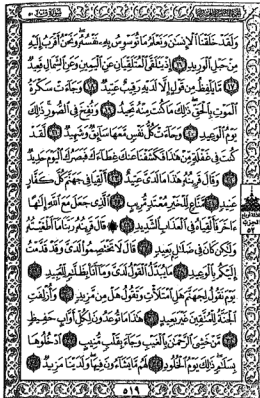 وَلَقَدْ خَلَقْنَا ٱلْإِنسَٰنَ وَنَعْلَمُ مَا تُوَسْوِسُ بِهِۦ نَفْسُهُۥ وَنَحْنُ أَقْرَبُ إِلَيْهِ
مِنْ حَبْلِ ٱلْوَرِيدِ ١٦ إِذْ يَتَلَقَّى ٱلْمُتَلَقِّيَانِ عَنِ ٱلْيَمِينِ وَعَنِ ٱلشِّمَالِ قَعِيدٌ
١٧ مَّا يَلْفِظُ مِن قَوْلٍ إِلَّا لَدَيْهِ رَقِيبٌ عَتِيدٌ ١٨ وَجَآءَتْ سَكْرَةُ
ٱلْمَوْتِ بِٱلْحَقِّ ذَٰلِكَ مَا كُنتَ مِنْهُ تَحِيدُ ١٩ وَنُفِخَ فِى ٱلصُّورِ ذَٰلِكَ
يَوْمُ ٱلْوَعِيدِ ٢٠ وَجَآءَتْ كُلُّ نَفْسٍ مَّعَهَا سَآئِقٌ وَشَهِيدٌ ٢١ لَّقَدْ
كُنتَ فِى غَفْلَةٍ مِّنْ هَٰذَا فَكَشَفْنَا عَنكَ غِطَآءَكَ فَبَصَرُكَ ٱلْيَوْمَ حَدِيدٌ
٢٢ وَقَالَ قَرِينُهُۥ هَٰذَا مَا لَدَىَّ عَتِيدٌ ٢٣ أَلْقِيَا فِى جَهَنَّمَ كُلَّ كَفَّارٍ
عَنِيدٍ ٢٤ مَّنَّاعٍ لِّلْخَيْرِ مُعْتَدٍ مُّرِيبٍ ٢٥ ٱلَّذِى جَعَلَ مَعَ ٱللَّهِ إِلَٰهًا
ءَاخَرَ فَأَلْقِيَاهُ فِى ٱلْعَذَابِ ٱلشَّدِيدِ ٢٦ قَالَ قَرِينُهُۥ رَبَّنَا مَآ أَطْغَيْتُهُۥ
وَلَٰكِن كَانَ فِى ضَلَٰلٍۭ بَعِيدٍ ٢٧ قَالَ لَا تَخْتَصِمُوا۟ لَدَىَّ وَقَدْ قَدَّمْتُ
إِلَيْكُم بِٱلْوَعِيدِ ٢٨ مَا يُبَدَّلُ ٱلْقَوْلُ لَدَىَّ وَمَآ أَنَا۠ بِظَلَّٰمٍ لِّلْعَبِيدِ ٢٩
يَوْمَ نَقُولُ لِجَهَنَّمَ هَلِ ٱمْتَلَأْتِ وَتَقُولُ هَلْ مِن مَّزِيدٍ ٣٠ وَأُزْلِفَتِ
ٱلْجَنَّةُ لِلْمُتَّقِينَ غَيْرَ بَعِيدٍ ٣١ هَٰذَا مَا تُوعَدُونَ لِكُلِّ أَوَّابٍ حَفِيظٍ
٣٢ مَّنْ خَشِىَ ٱلرَّحْمَٰنَ بِٱلْغَيْبِ وَجَآءَ بِقَلْبٍ مُّنِيبٍ ٣٣ ٱدْخُلُوهَا
بِسَلَٰمٍ ذَٰلِكَ يَوْمُ ٱلْخُلُودِ ٣٤ لَهُم مَّا يَشَآءُونَ فِيهَا وَلَدَيْنَا مَزِيدٌ ٣٥
٥١٩